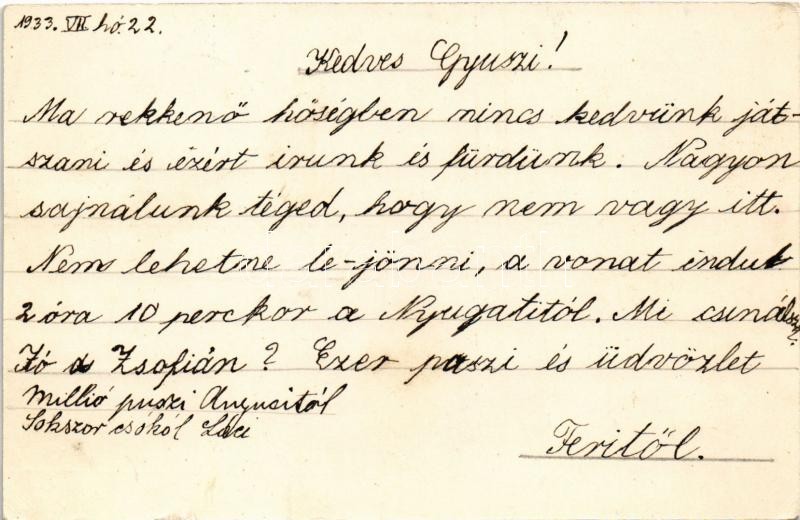 1933. VII hó. 22.
Kedves Gyuszi!
Ma rekkenő hőségben nincs kedvünk ját-
szani és ezért irunk és fürdünk. Nagyon
sajnálunk téged, hogy nem vagy itt.
Nem lehetne le-jönni, a vonat indul
2 óra 10 perckor a Nyugatitól. Mi csinálsz.
Jó a Zsofián? Ezer puszi és üdvözlet
Millió puszi Angusitól
Sokszor csókól Láci
Feritől.